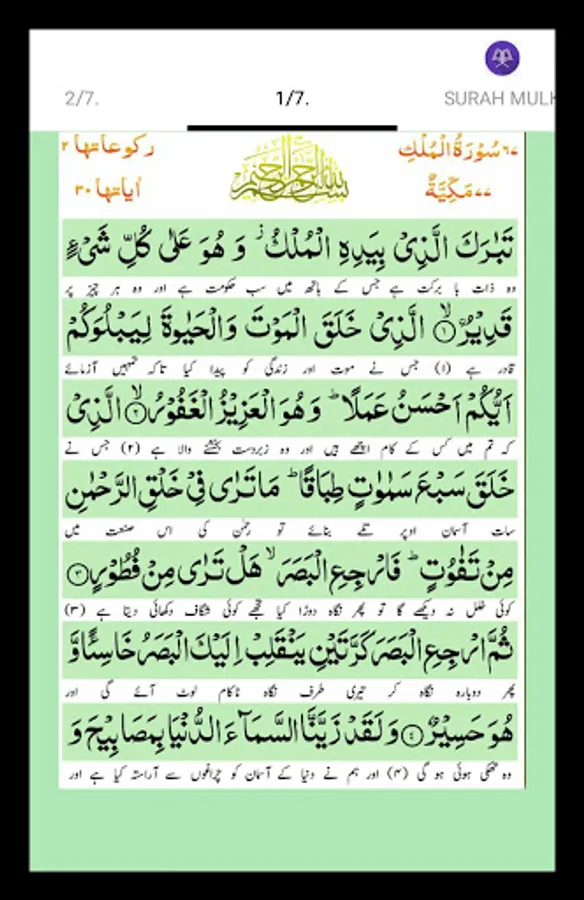 2/7. 1/7. SURAH MULK
٦٧ سُوْرَةُ الْمُلْكِ
رکوعاتها ٢
٧٧ مَكِّيَّةٌ
اٰیاتها ٣٠
بسم الله الرحمن الرحيم
تَبٰرَكَ الَّذِیْ بِیَدِهِ الْمُلْكُ ؗ وَ هُوَ عَلٰی كُلِّ شَیْءٍ
وہ ذات با برکت ہے جس کے ہاتھ میں سب حکومت ہے اور وہ ہر چیز پر
قَدِیْرُ ۙ﴿۱﴾ الَّذِیْ خَلَقَ الْمَوْتَ وَالْحَیٰوةَ لِیَبْلُوَكُمْ
قادر ہے (۱) جس نے موت اور زندگی کو پیدا کیا تاکہ تمہیں آزمائے
اَیُّكُمْ اَحْسَنُ عَمَلًا ؕ وَ هُوَ الْعَزِیْزُ الْغَفُوْرُ ۙ﴿۲﴾ الَّذِیْ
کہ تم میں کس کے کام اچھے ہیں اور وہ زبردست بخشنے والا ہے (۲) جس نے
خَلَقَ سَبْعَ سَمٰوٰتٍ طِبَاقًا ؕ مَا تَرٰی فِیْ خَلْقِ الرَّحْمٰنِ
سات آسمان اوپر تلے بنائے تو رحمٰن کی اس صنعت میں
مِنْ تَفٰوُتٍ ؕ فَارْجِعِ الْبَصَرَ ۙ هَلْ تَرٰی مِنْ فُطُوْرٍ ﴿۳﴾
کوئی خلل نہ دیکھے گا تو پھر نگاہ دوڑا کیا تجھے کوئی شگاف دکھائی دیتا ہے (۳)
ثُمَّ ارْجِعِ الْبَصَرَ كَرَّتَیْنِ یَنْقَلِبْ اِلَیْكَ الْبَصَرُ خَاسِئًا وَّ
پھر دوبارہ نگاہ کر تیری طرف نگاہ ناکام لوٹ آئے گی اور
هُوَ حَسِیْرٌ ﴿۴﴾ وَ لَقَدْ زَیَّنَّا السَّمَآءَ الدُّنْیَا بِمَصَابِیْحَ وَ
وہ تھکی ہوئی ہو گی (۴) اور ہم نے دنیا کے آسمان کو چراغوں سے آراستہ کیا ہے اور